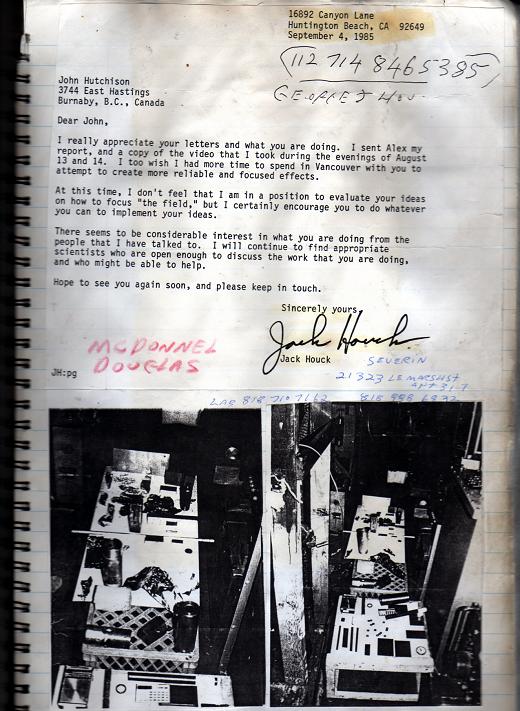 16892 Canyon Lane
Huntington Beach, CA 92649
September 4, 1985
(112 714 8465385)
John Hutchison
3744 East Hastings
Burnaby, B.C., Canada
Dear John,
I really appreciate your letters and what you are doing. I sent Alex my
report, and a copy of the video that I took during the evenings of August
13 and 14. I too wish I had more time to spend in Vancouver with you to
attempt to create more reliable and focused effects.
At this time, I don't feel that I am in a position to evaluate your ideas
on how to focus "the field," but I certainly encourage you to do whatever
you can to implement your ideas.
There seems to be considerable interest in what you are doing from the
people that I have talked to. I will continue to find appropriate
scientists who are open enough to discuss the work that you are doing,
and who might be able to help.
Hope to see you again soon, and please keep in touch.
Sincerely yours,
Jack Houck
Jack Houck
MCDONNEL
DOUGLAS
JH:pg
SEVERIN
21323 LEMARSH ST
LAB 818 710 7162